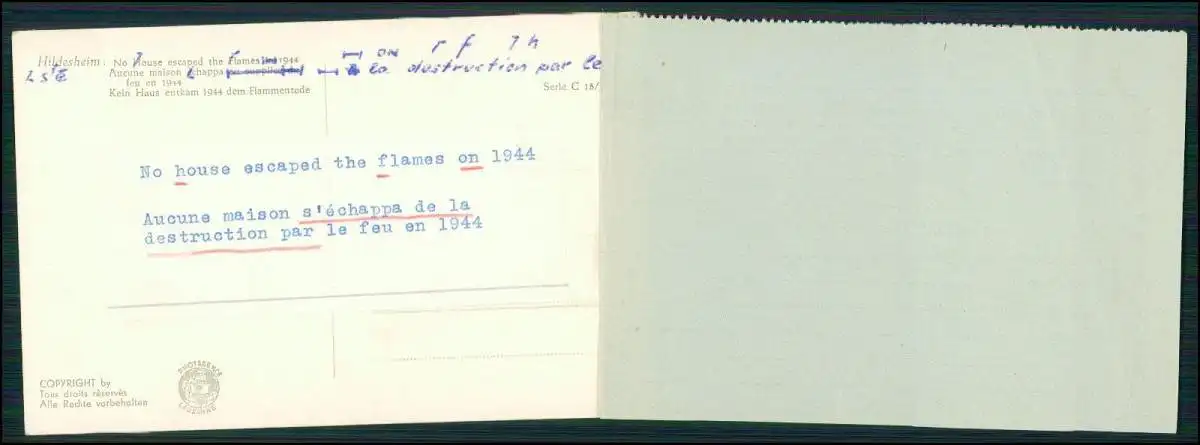 on r f 7 h
Hildesheim: No House escaped the Flames in 1944
Aucune maison échappa
la destruction par le
feu en 1944
Kein Haus entkam 1944 dem Flammentode
Serie C 18/
No house escaped the flames on 1944
Aucune maison s'échappa de la
destruction par le feu en 1944
COPYRIGHT by
Tous droits réservés
Alle Rechte vorbehalten